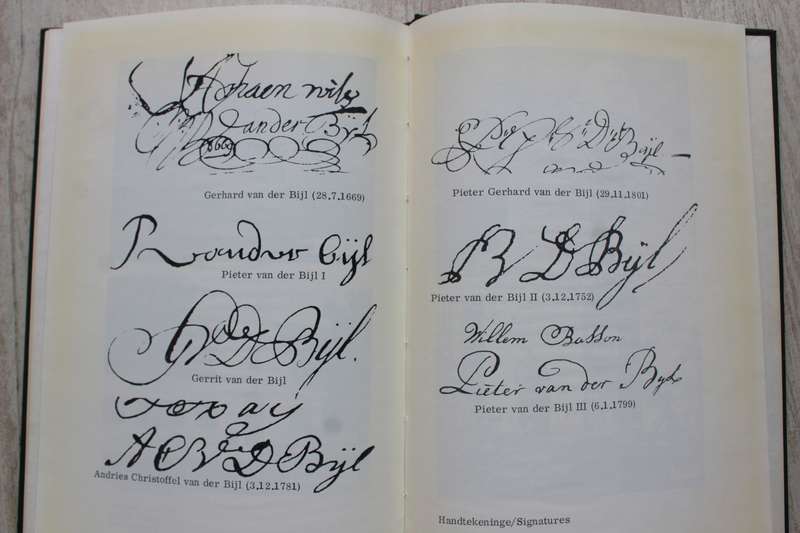 van der Bijl
1669
Gerhard van der Bijl (28.7.1669)
P van der bijl
Pieter van der Bijl I
G V D Bijl.
Gerrit van der Bijl
A C V D Bijl
Andries Christoffel van der Bijl (3.12.1781)
V D Bijl
Pieter Gerhard van der Bijl (29.11.1801)
P V D Bijl
Pieter van der Bijl II (3.12.1752)
Willem Basson
Pieter van der Byl
Pieter van der Bijl III (6.1.1799)
Handtekeninge/Signatures